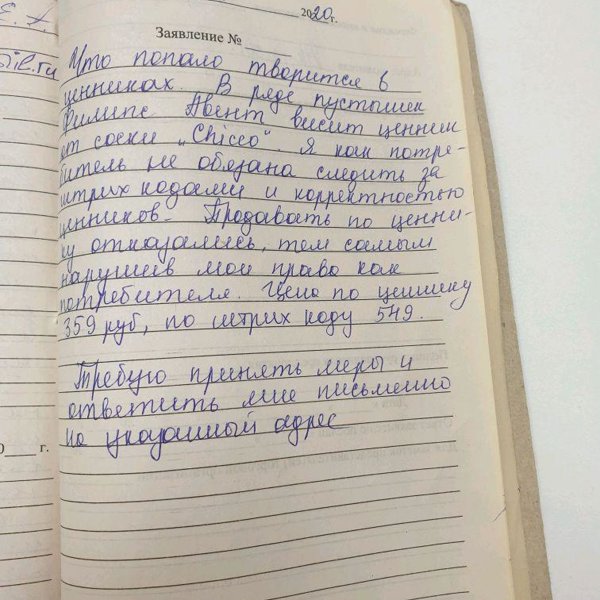 2020г.
Заявление №
Что попало творится в
ценниках. В ряде пустышек
Филипс Авент висит ценник
от соски „Chicco". Я как потре-
битель не обязана следить за
штрих кодами и корректностью
ценников. Продавать по ценни-
ку отказались, тем самым
нарушив мои право как
потребителя. Цена по ценнику
359 руб, по штрих коду 549.
Требую принять меры и
ответить мне письменно
на указанный адрес
sil.ru
0 г.